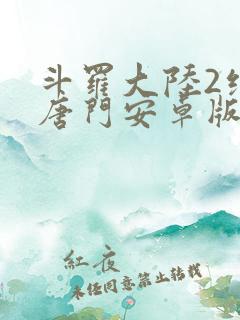 斗羅大陸2
唐門安卓版
紅夜
未任同意禁止转载